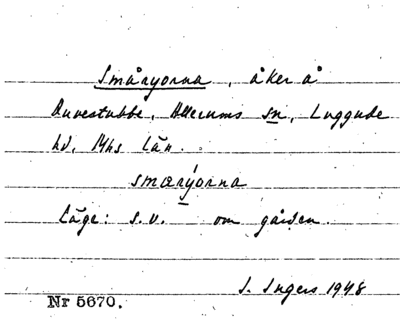 Småryorna, åker å
Duvestubbe, Allerums sn, Luggude
hd, Mhs län.
smærýorna
Läge: s.v. om gården.
I. Ingers 1948
Nr 5670.